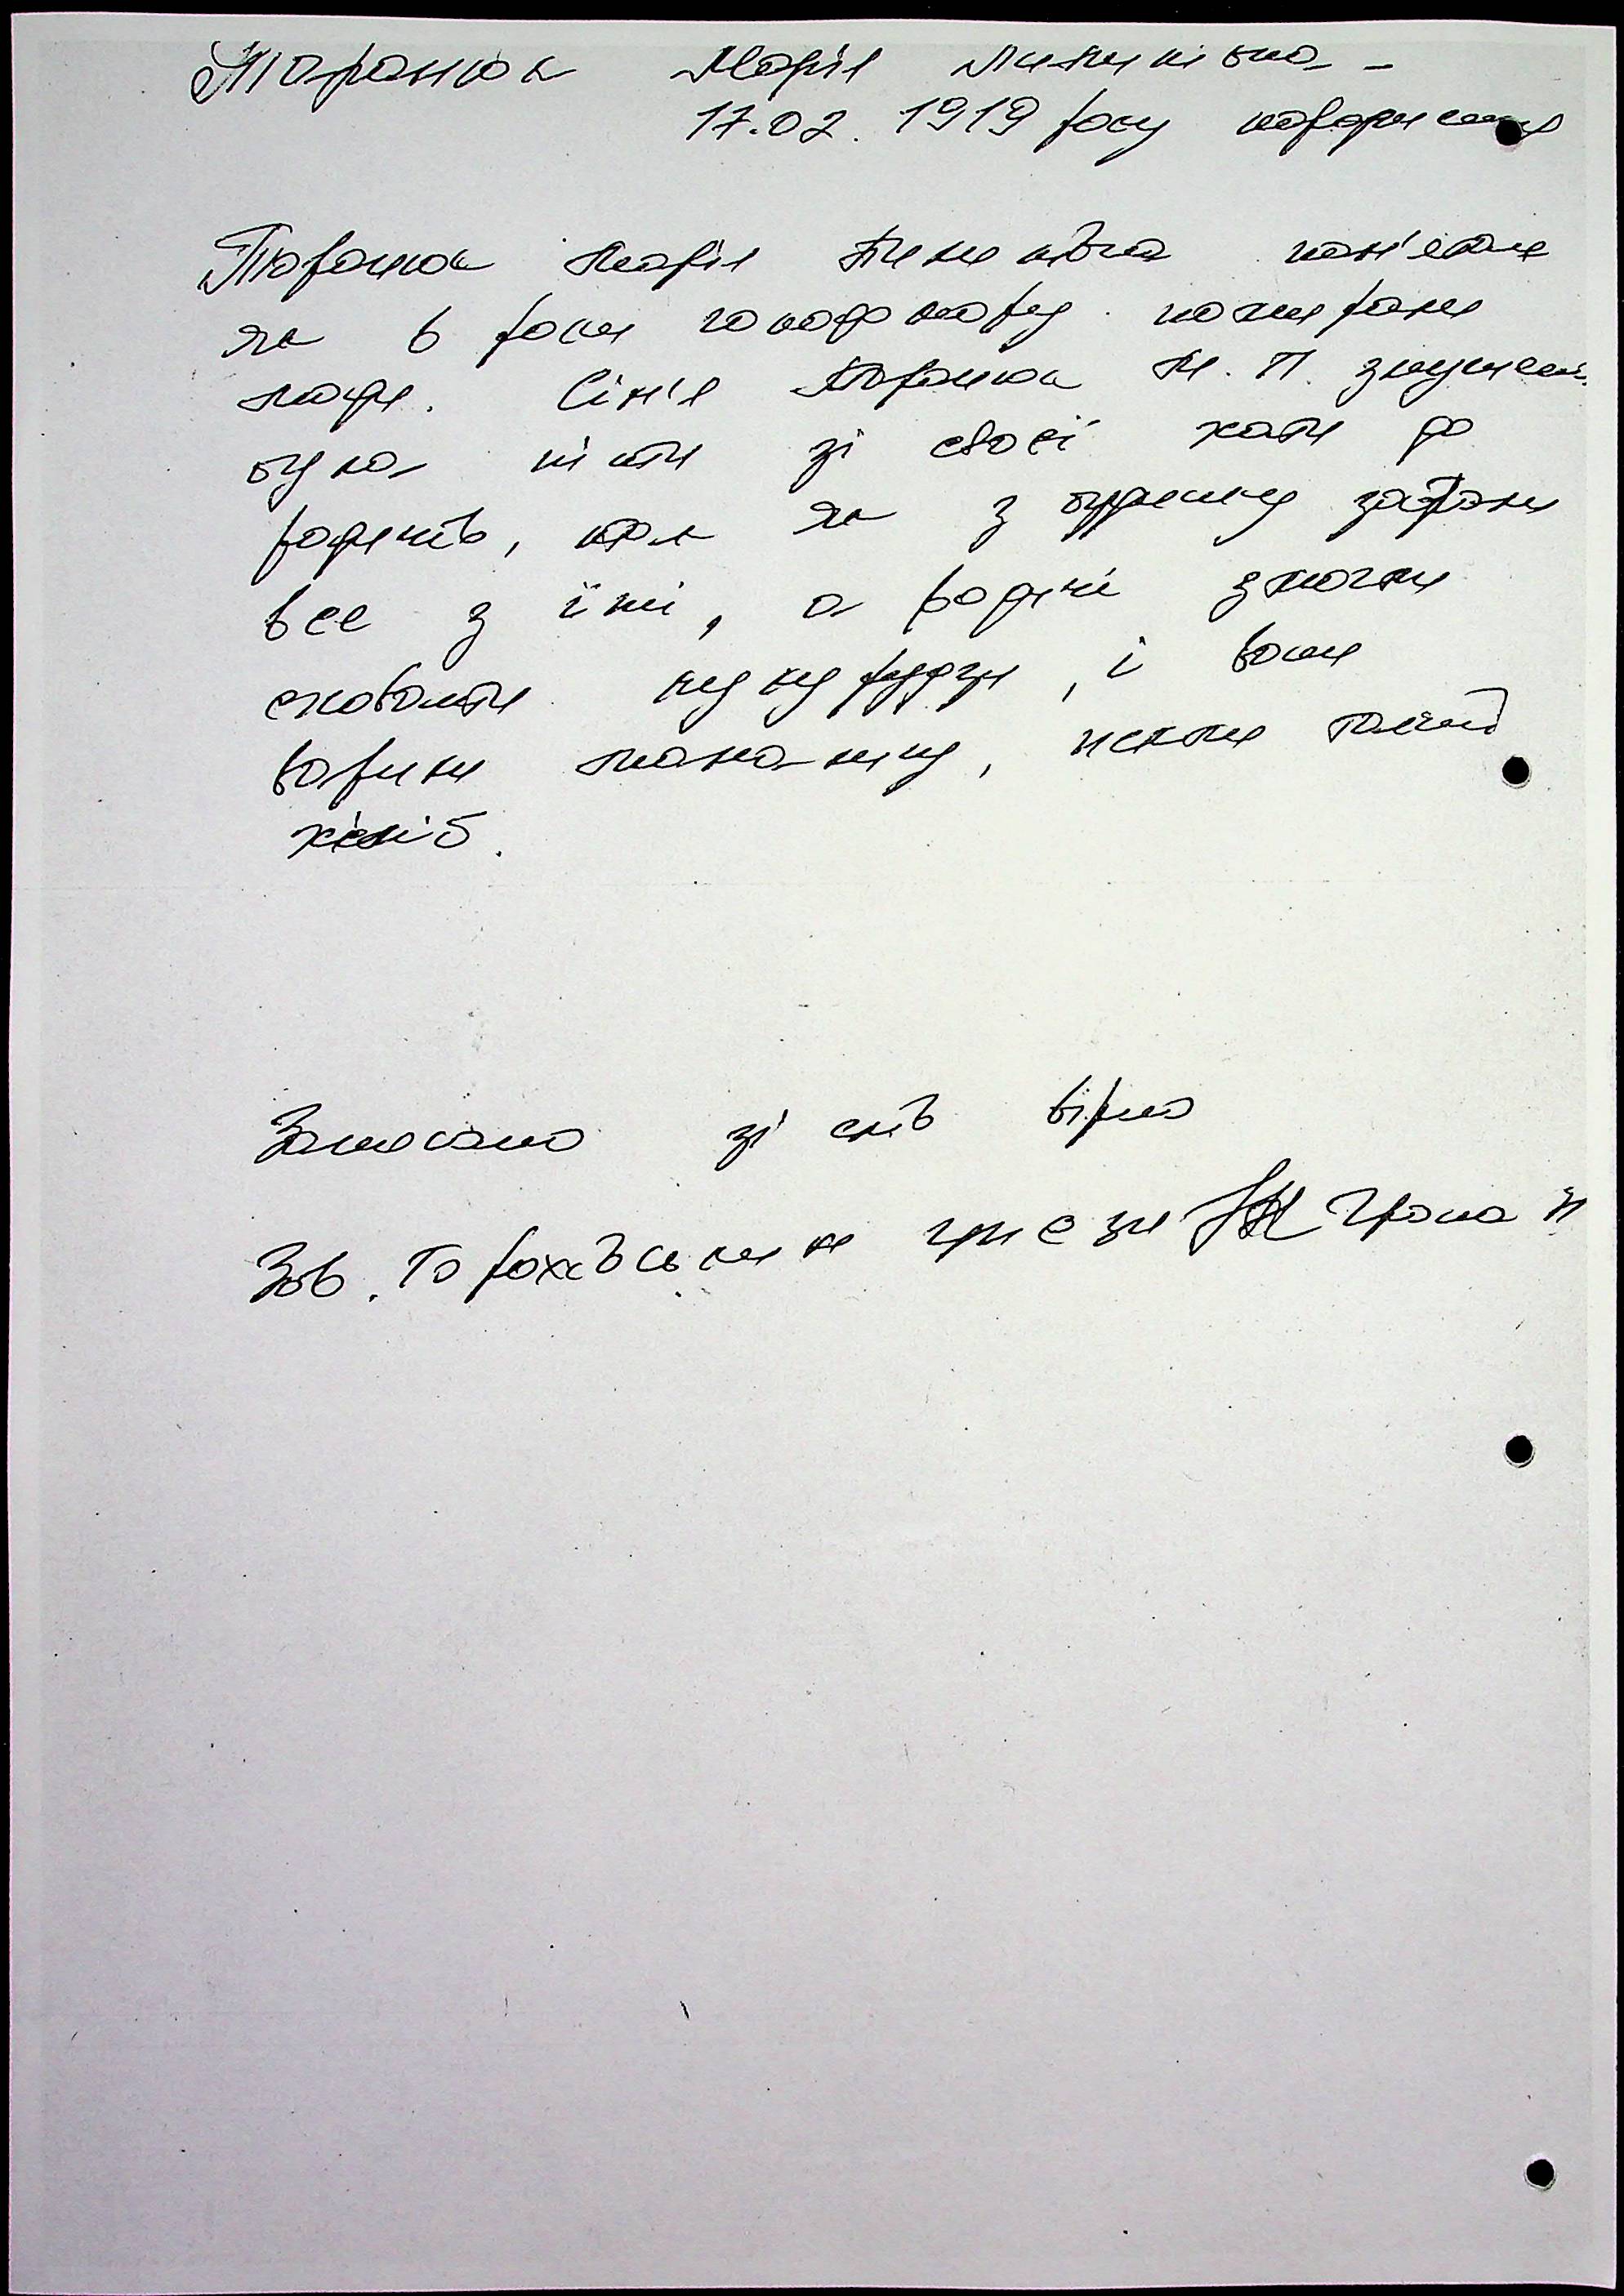 Таранюк Марія Пилипівна –
17.02.1919 року народження
Таранюк Марія Пилипівна пам'ятає
як в роки голодомору помирали
люди. Сім'я Таранюк М. П. змушена
була піти зі своєї хати до
родичів, так як з будинку забрали
все з їжі, а родичі змогли
сховати кукурудзу, і вони
варили мамалигу, пекли такий
хліб.
Записано зі слів вірно
Зав. Горохівським